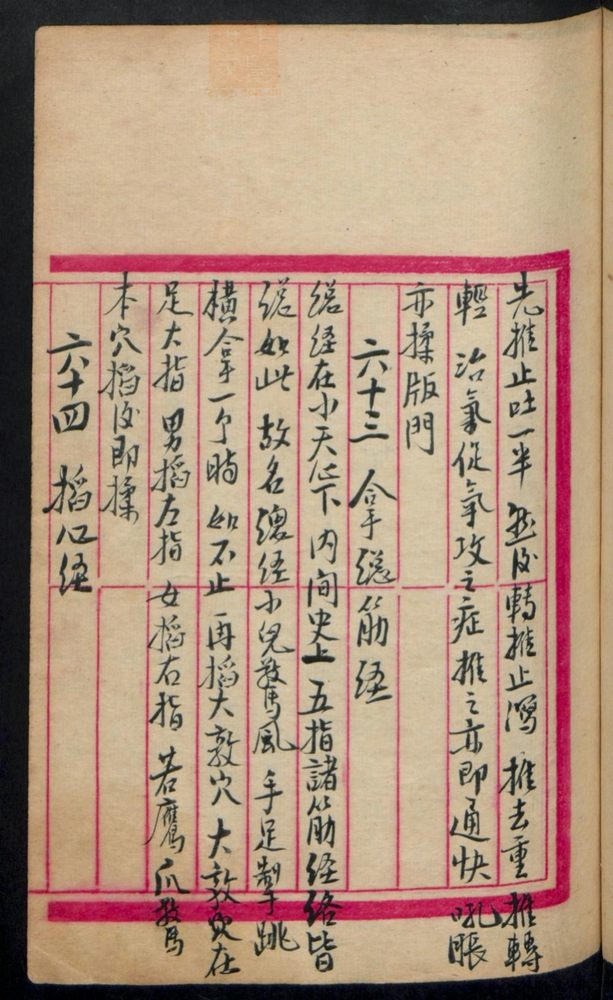 先推止吐一半 然後轉推止瀉 推去重 推轉
輕 治氣促氣攻之症推之亦即通快 吼脹
亦揉版門
六十三 拿總筋經
總經在小天心下 內間史上 五指諸筋經絡皆
總如此 故名總經小兒驚風 手足掣跳
橫拿一个時 如不止 再掐大敦穴 大敦穴在
足大指 男掐左指 女掐右指 若鷹爪驚
本穴掐後即揉
六十四 掐心經